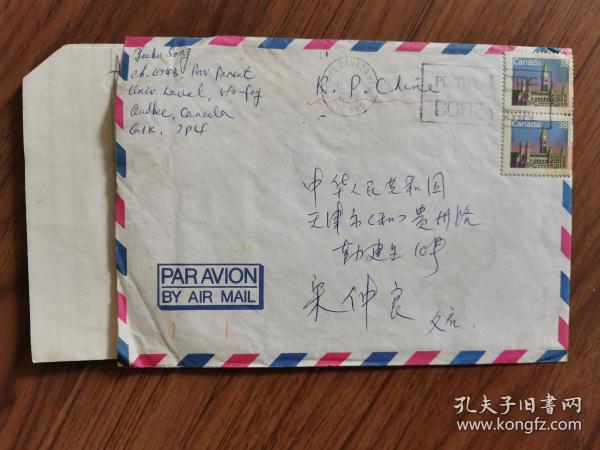 Song
Univ. Laval, Ste-Foy
Québec, Canada
G1K, 7P4
R. P. Chine
CANADA
POSTAL CODE
Canada 38
Canada 38
中华人民共和国
天津市(和)贵州路
勤建里10号
宋仲良
PAR AVION
BY AIR MAIL
孔夫子旧书网
www.kongfz.com